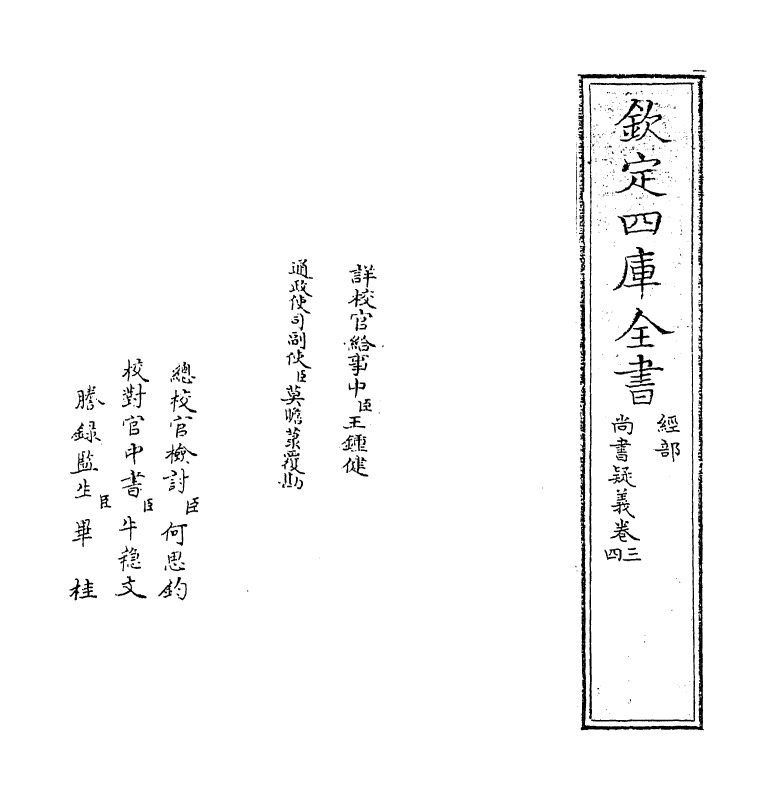 欽定四庫全書
經部
尚書疑義卷三四
詳校官給事中臣王鍾健
通政使司副使臣莫瞻菉覆勘
總校官檢討臣何思鈞
校對官中書臣牛稔文
謄錄監生臣畢桂